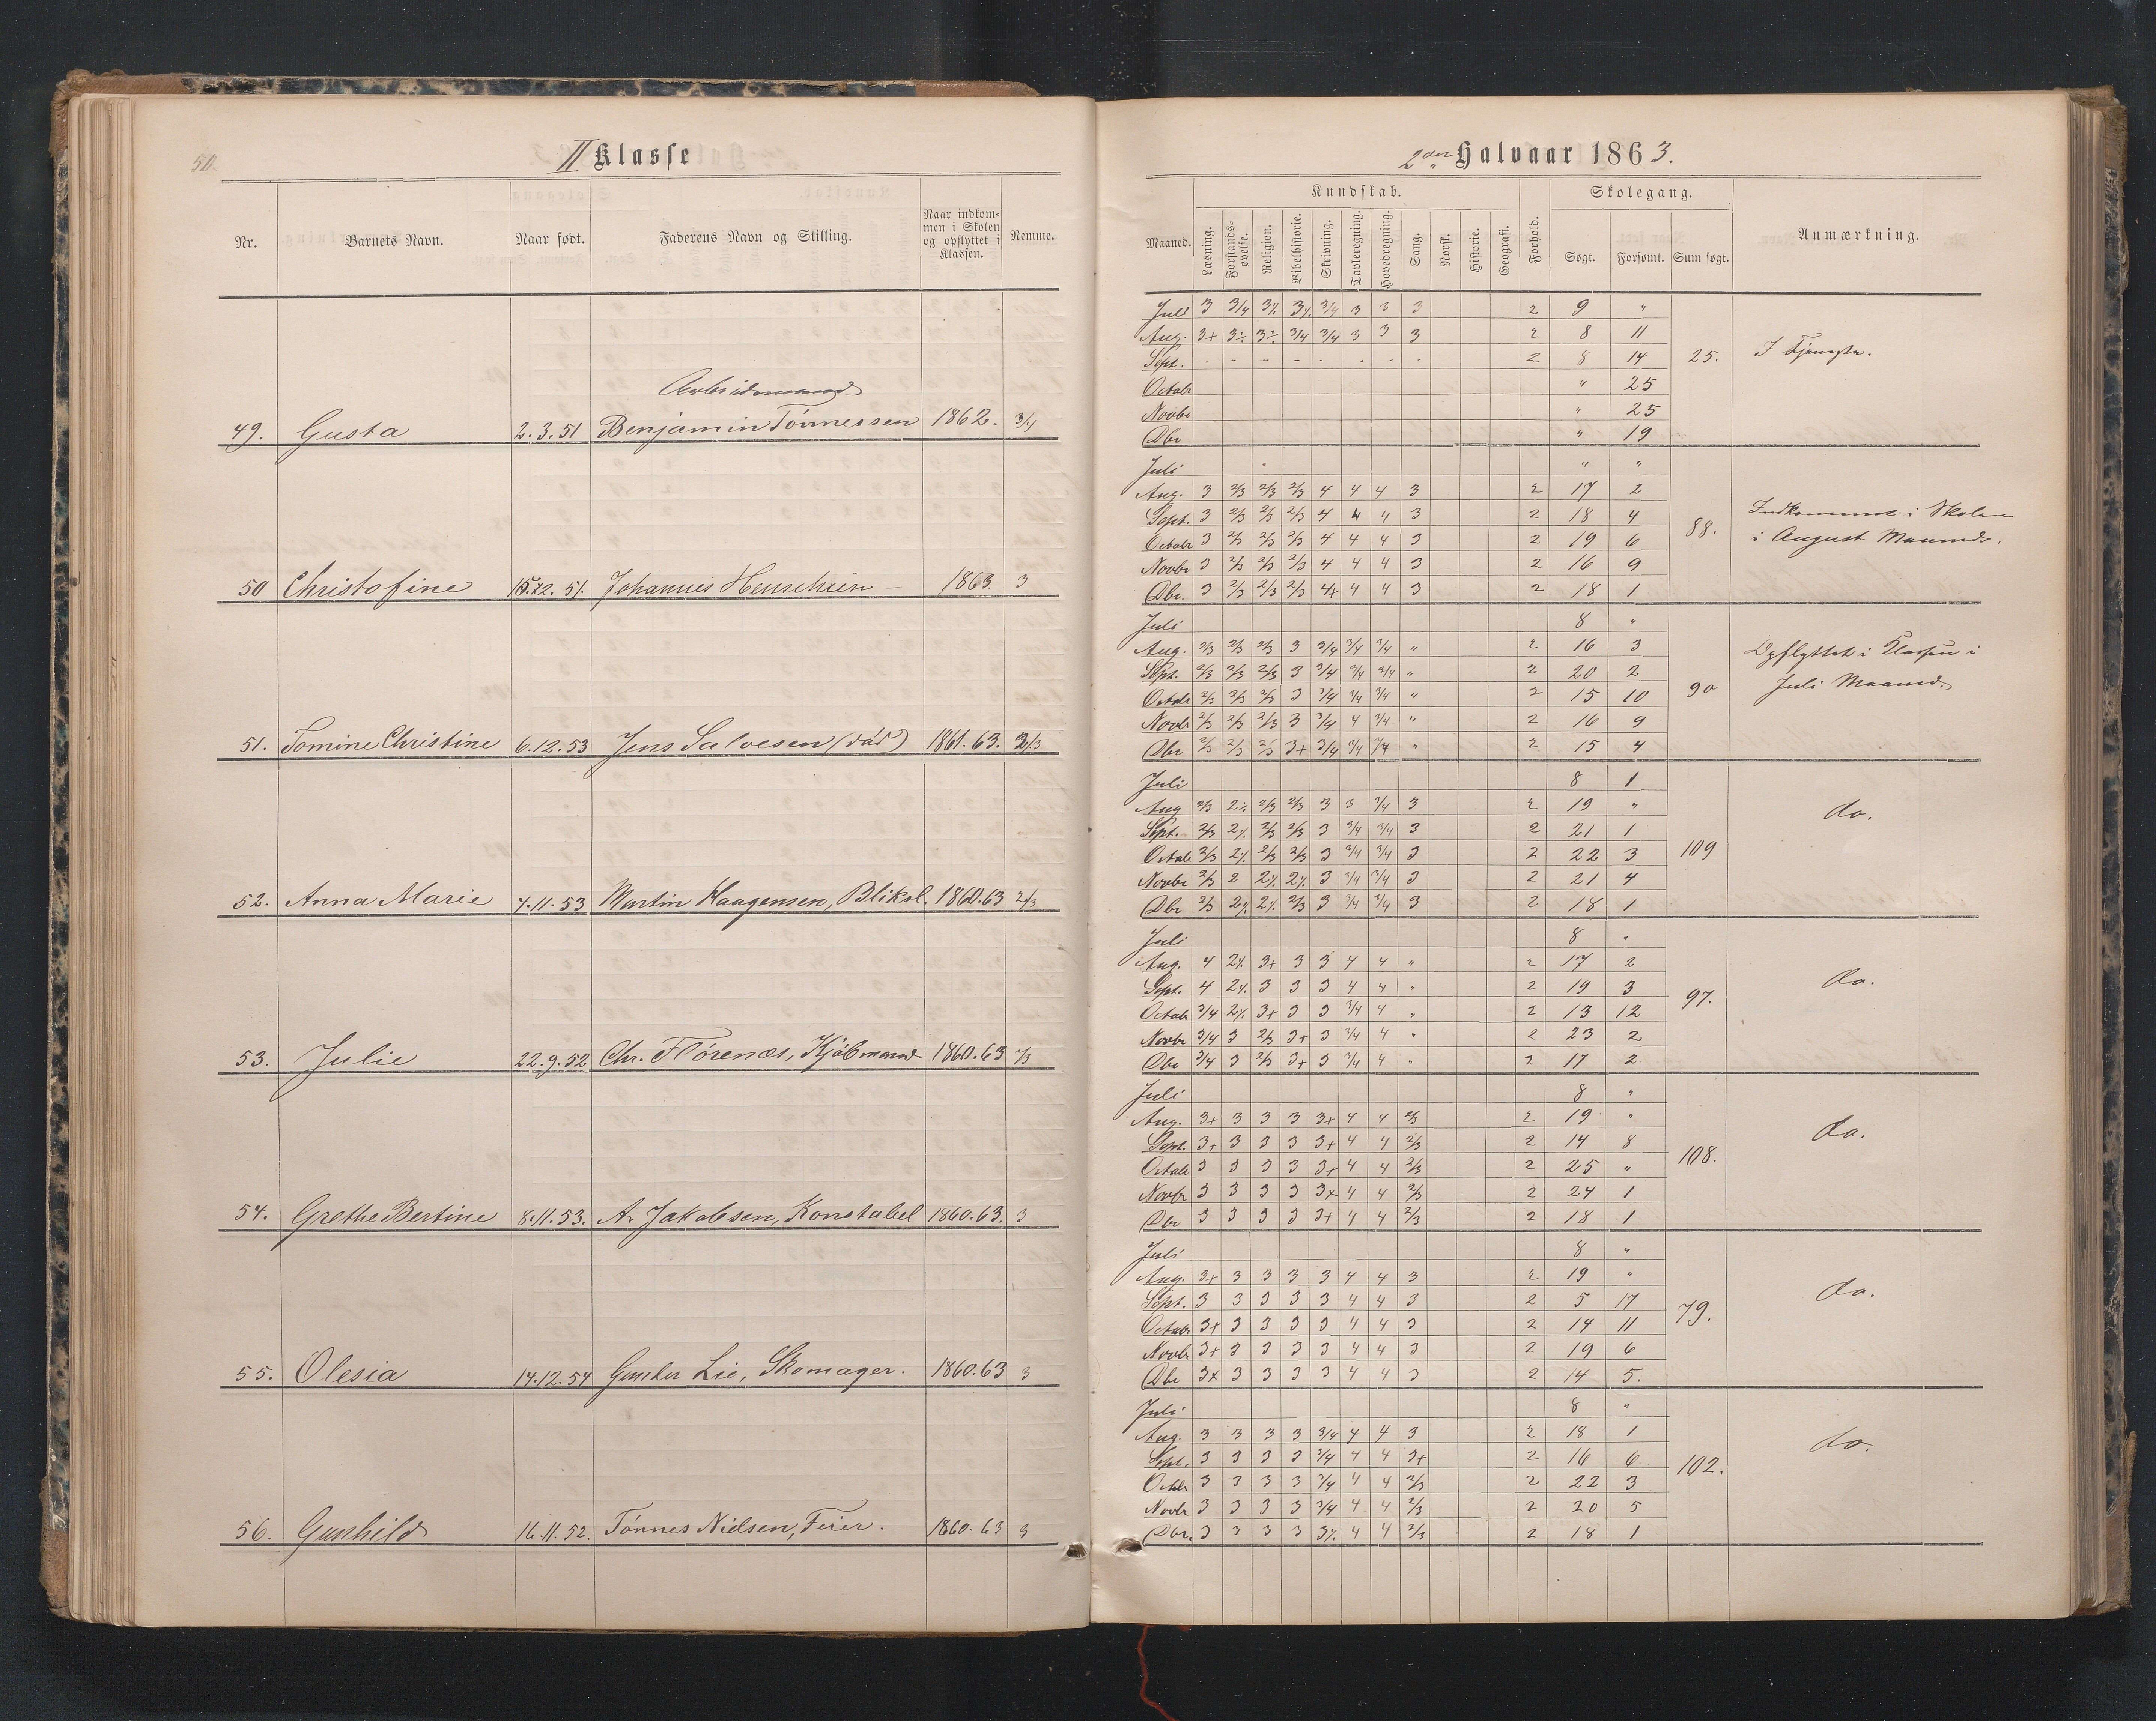 50.
II Klasse
Nr.
Barnets Navn.
Naar født.
Faderens Navn og Stilling.
Naar indkom-
men i Skolen
og opflyttet i
Klassen.
Nemme.
Arbeidsmand
49. Gusta 2.3.51 Benjamin Tønnessen 1862. 3/4
50 Christofine 12.51. Johannes 1863 3
51. Tomine Christine 6.12.53 Jens Salvesen (død) 1861.63. 2/3
52. Anna Marie 4.11.53 Martin Haagensen, Bliksl. 1860.63 2/3
53. Julie 22.9.52 Chr. Flørenæs, Kjøbmand 1860.63
54. Grethe Bertine 8.11.53. A. Jakobsen, Konstabel 1860.63. 3
55. Olesia 14.12.54 Gunder Lie, Skomager. 1860.63 3
56. Gunhild 16.11.52. Tønnes Nielsen, Feier. 1860.63 3
2den Halvaar 1863.
Maaned.
Kundskab.
Læsning.
Forstands-
øvelse.
Religion.
Bibelhistorie.
Skrivning.
Tavleregning.
Hovedregning.
Sang.
Norsk.
Historie.
Geografi.
Forhold.
Skolegang.
Søgt.
Forsømt.
Sum søgt.
Anmærkning.
Juli 3 3/4 3% 3% 3/4 3 3 3 2 9 "
Aug. 3+ 3÷ 3÷ 3/4 3/4 3 3 3 2 8 11
Sept. - - - - - - - - 2 8 14 25. I Tjeneste.
Octobr " 25
Novbr " 25
Dbr " 19
Juli " "
Aug. 3 2/3 2/3 2/3 4 4 4 3 2 17 2
Sept. 3 2/3 2/3 2/3 4 4 4 3 2 18 4 88. Indkommet i Skolen
Octobr 3 2/3 2/3 2/3 4 4 4 3 2 19 6 i August Maaned.
Novbr 3 2/3 2/3 2/3 4 4 4 3 2 16 9
Dbr. 3 2/3 2/3 2/3 4+ 4 4 3 2 18 1
Juli 8 "
Aug. 2/3 2/3 2/3 3 3/4 3/4 3/4 " 2 16 3 Opflyttet i Klassen i
Sept. 2/3 2/3 2/3 3 3/4 3/4 3/4 " 2 20 2 90 Juli Maaned.
Octobr 2/3 2/3 2/3 3 3/4 3/4 3/4 " 2 15 10
Novbr 2/3 2/3 2/3 3 3/4 4 3/4 " 2 16 9
Dbr 2/3 2/3 2/3 3+ 3/4 3/4 3/4 " 2 15 4
Juli 8 1
Aug 2/3 2% 2/3 2/3 3 3 3/4 3 2 19 " do.
Sept. 2/3 2% 2/3 2/3 3 3/4 3/4 3 2 21 1
Octobr 2/3 2% 2/3 2/3 3 3/4 3/4 3 2 22 3 109
Novbr 2/3 2 2% 2% 3 3/4 3/4 3 2 21 4
Dbr 2/3 2% 2% 2/3 3 3/4 3/4 3 2 18 1
Juli 8 "
Aug. 4 2% 3+ 3 3 4 4 " 2 17 2
Sept. 4 2% 3 3 3 4 4 " 2 19 3 97. do.
Octobr 3/4 2% 3+ 3 3 3/4 4 " 2 13 12
Novbr 3/4 3 2/3 3+ 3 3/4 4 " 2 23 2
Dbr 3/4 3 2/3 3+ 3 3/4 4 " 2 17 2
Juli 8 "
Aug. 3+ 3 3 3 3+ 4 4 2/3 2 19 "
Sept. 3+ 3 3 3 3+ 4 4 2/3 2 14 8 108. do.
Octobr 3 3 3 3 3+ 4 4 2/3 2 25 "
Novbr 3 3 3 3 3+ 4 4 2/3 2 24 1
Dbr 3 3 3 3 3+ 4 4 2/3 2 18 1
Juli 8 "
Aug. 3+ 3 3 3 3 4 4 3 2 19 "
Sept. 3 3 3 3 3 4 4 3 2 5 17 79. do.
Octobr 3+ 3 3 3 3 4 4 3 2 14 11
Novbr 3+ 3 3 3 3 4 4 3 2 19 6
Dbr 3+ 3 3 3 3 4 4 3 2 14 5.
Juli 8 "
Aug. 3 3 3 3 3/4 4 4 3 2 18 1 do.
Sept. 3 3 3 3 3/4 4 4 3+ 2 16 6 102.
Octbr 3 3 3 3 3/4 4 4 2/3 2 22 3
Novbr 3 3 3 3 3/4 4 4 2/3 2 20 5
Dbr. 3 3 3 3 3% 4 4 2/3 2 18 1